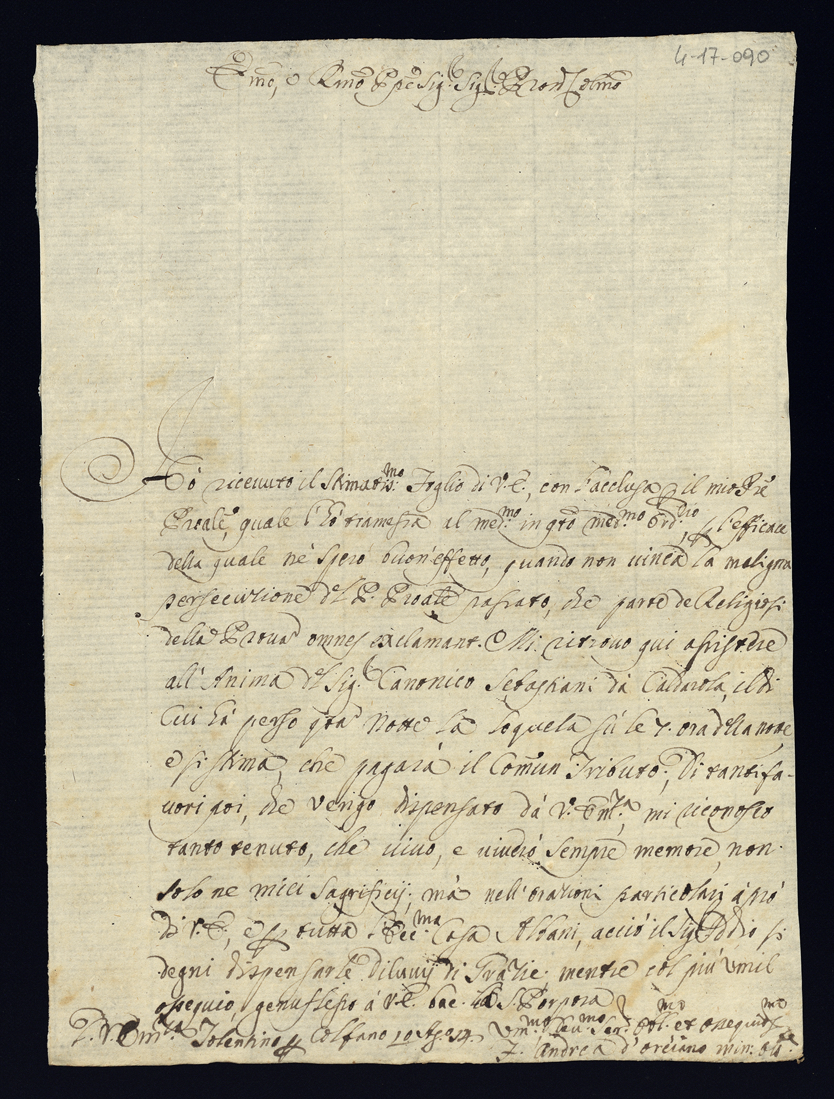 4-17-090
Em̃o, e Rm̃o Ppe Sig.r Sig.r Pron Colm̃o
Hò riceuuto il stimatis.mo Foglio di V.E., con l'acclusa p il mio Pre
Proale, quale l'hò tramessa al med.mo in gto med.mo ord.rio, p l'efficace
della quale ne spero buon'effetto, quando non uinca la maligna
persecuzione del P. Proale passato, che parte de Religiosi
della Proua omnes exclamant. Mi ritrouo qui assistere
all'Anima del Sig.r Canonico Sebastiani da Caldarola, il di
Cui hà perso gta notte la loquela sù le 7. ora della notte
e si stima, che pagarà il Comun Tributo; Di tanti fa-
uori poi, che vengo dispensato da V. Em.za, mi riconosco
tanto tenuto, che uiuo, e uiuerò sempre memore, non
solo ne miei sagrificij, mà nell'orationi particolari à prò
di V.E., e p tutta l'Ecc.ma Casa Albani, acciò il Sig. Iddio si
degni dispensarle diluuij di Grazie. mentre col più umil
ossequio, genuflesso à V.E. bac. la S. Porpora
D. V. Em.za Tolentino p Colfano 10 Ag.
Um.mo Seru.
F. Andrea d'Orciano Min: